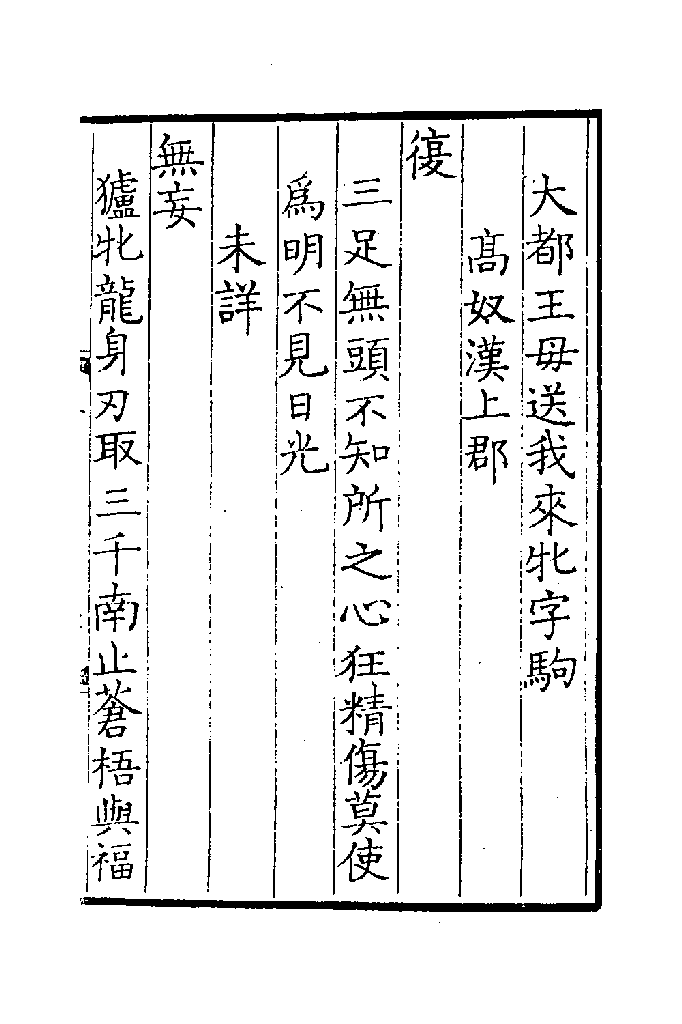 大都王毋送我來牝字駒
髙奴漢上郡
復
三足無頭不知所之心狂精傷莫使
為明不見日光
未詳
無妄
㹧牝龍身刃取三千南止蒼梧與福